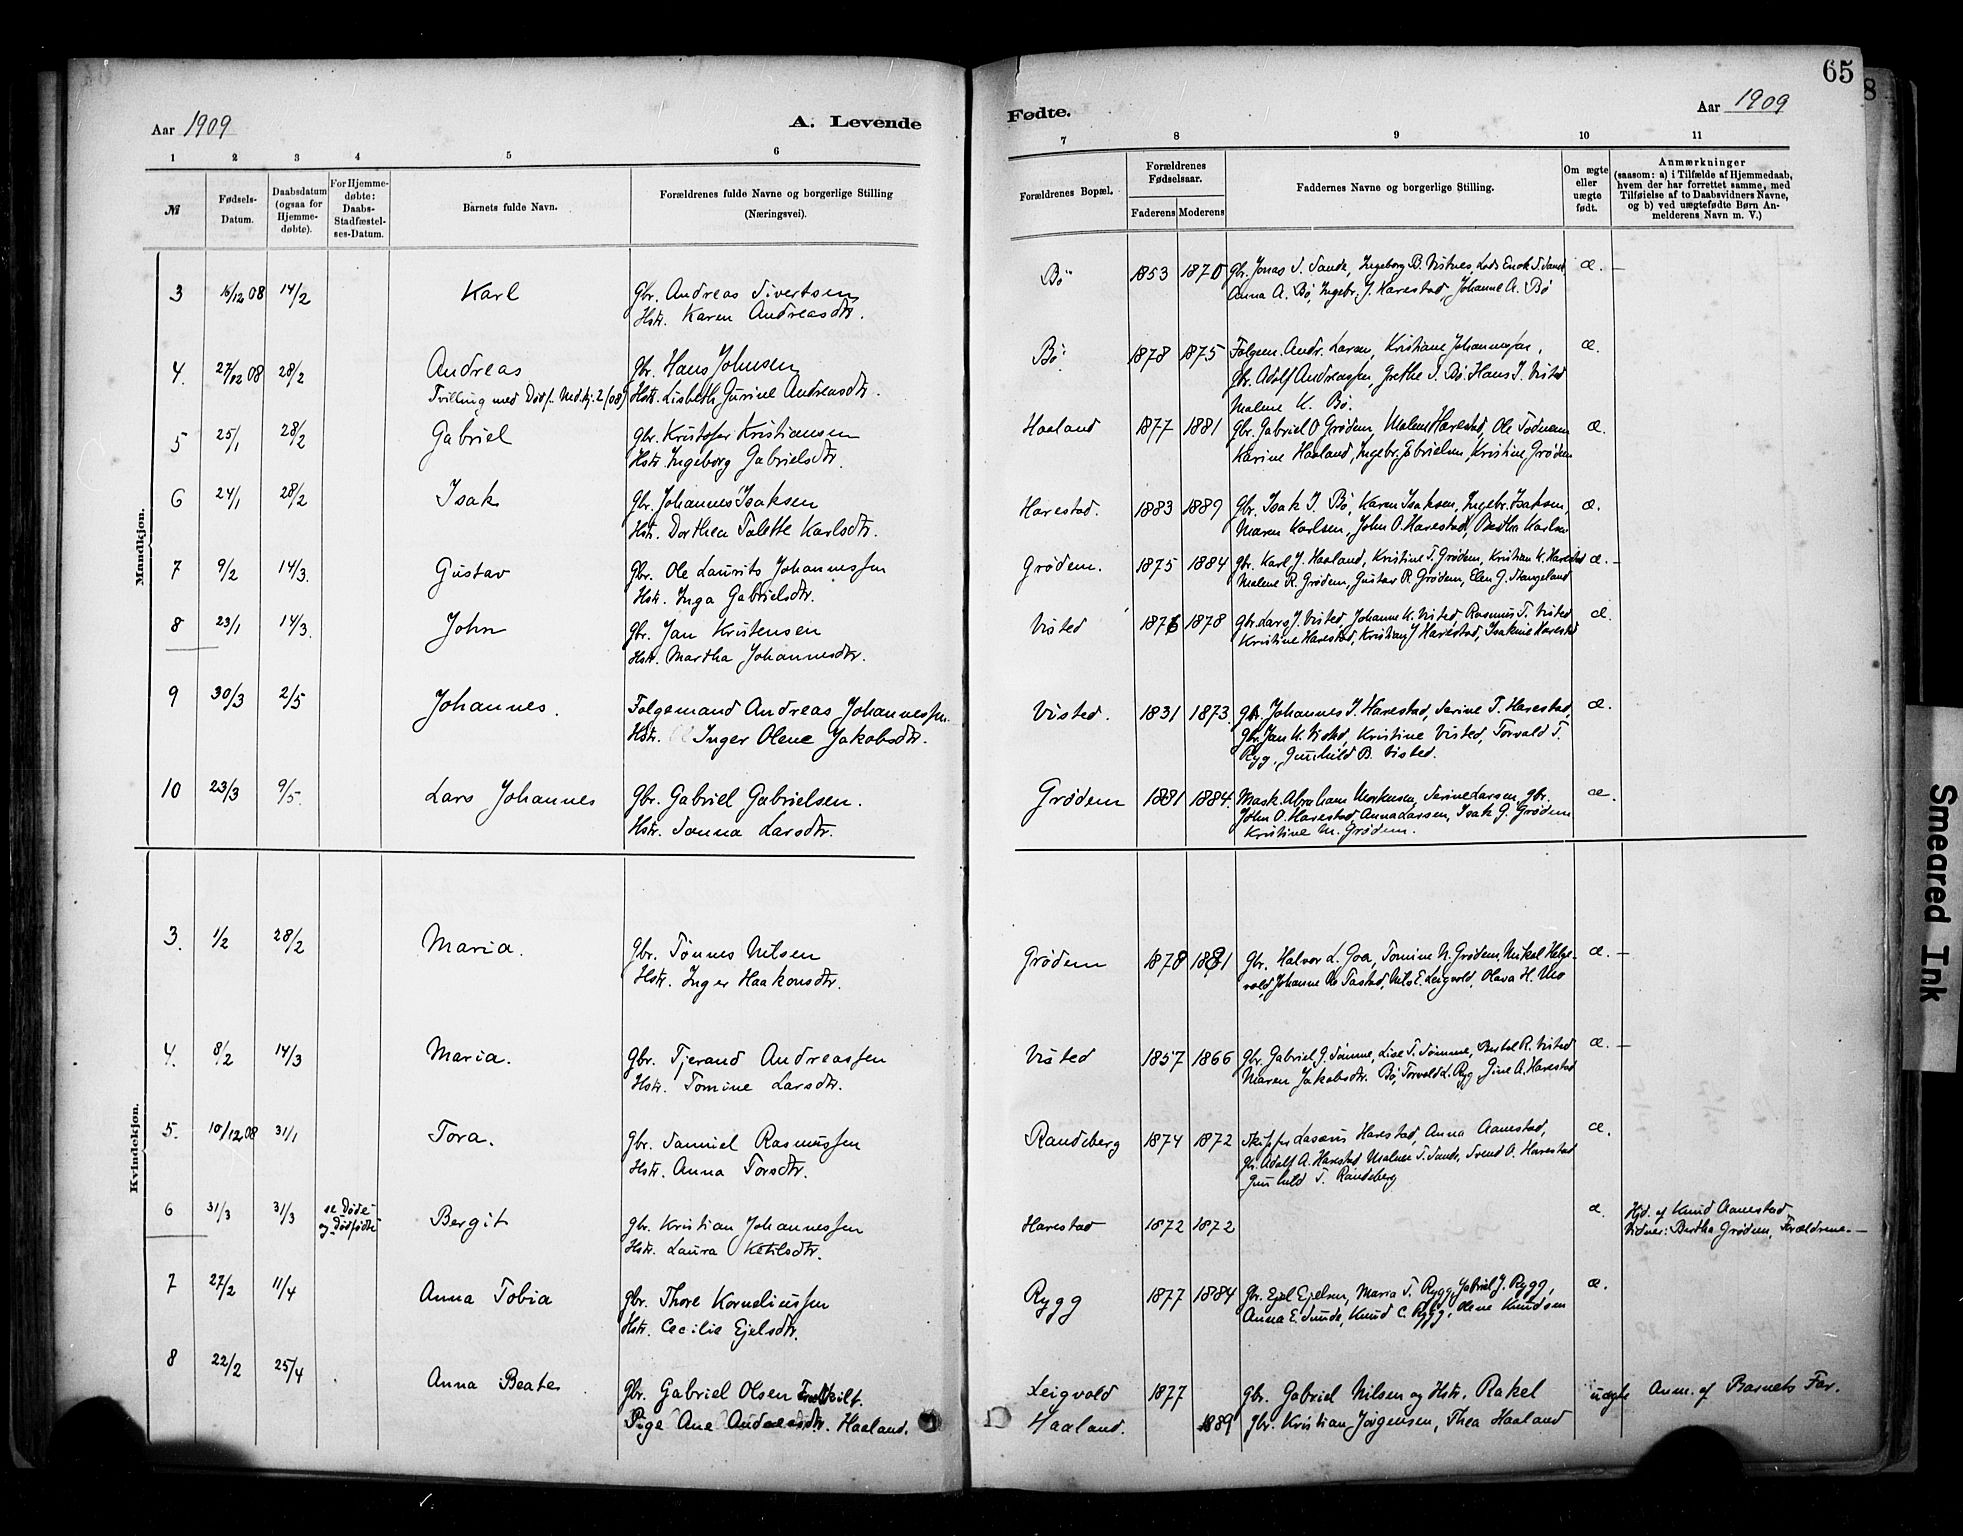 65
8
Aar 1909
A. Levende
Fødte.
Aar 1909
1 2 3 4 5 6 7 8 9 10 11
№
Fødsels-Datum.
Daabsdatum (ogsaa for Hjemme-døbte).
For Hjemme-døbte: Daabs-Stadfæstel-ses-Datum.
Barnets fulde Navn.
Forældrenes fulde Navne og borgerlige Stilling (Næringsvei).
Forældrenes Bopæl.
Forældrenes Fødselsaar.
Faderens Moderens
Faddernes Navne og borgerlige Stilling.
Om ægte eller uægte født.
Anmærkninger (saasom: a) i Tilfælde af Hjemmedaab, hvem der har forrettet samme, med Tilføielse af to Daabsvidners Navne, og b) ved uægtefødte Børn Anmelderens Navn m. V.)
Mandkjøn.
3 16/12 08 14/2 Karl
Gbr. Andreas Sivertsen
Hstr. Karen Andreasdtr.
Bö 1853 1870
Gbr. Jonas S. Sande, Ingeborg B. Vistnes, Enok S. Sande
Anna A. Bö, Ingebr. J. Harestad, Johanne A. Bö
æ. –
4. 27/12 08 28/2 Andreas
Tvilling med Dødf. Mdkj. 2/08)
Gbr. Hans Johnsen
Hstr. Lisbeth Gurine Andreasdtr.
Bö 1878 1875
Følgem. Andr. Larsen, Kristiane Johannessen,
Gbr. Adolf Andreassen, Grethe S. Bö. Hans J. Visted
Malene K. Bö.
æ.
5 25/1 28/2 Gabriel
Gbr. Kristofer Kristiansen
Hstr. Ingeborg Gabrielsdtr.
Haaland 1877 1881
Gbr. Gabriel O Grödem, Malene Harestad, Ole Todnem
Karine Haaland, Ingebr. Gbrielsen, Kristine Grödem
æ.
6 24/1 28/2 Isak
Gbr. Johannes Isaksen
Hstr. Dorthea Talette Karlsdtr.
Harestad. 1883 1889
Gbr. Isak I. Bö, Karen Isaksen, Ingebr. Isaksen,
Maren Karlsen, John O. Harestad, Bertha Karlsen
æ.
7 9/2 14/3. Gustav
Gbr. Ole Laurits Johannessen
Hstr. Inga Gabrielsdtr.
Grödem. 1875 1884
Gbr. Karl J. Haaland, Kristine T. Grödem, Kristian K. Harestad
Malene R. Grödem, Gustav R. Grödem, Elen G. Stangeland
æ. –
8 23/1 14/3. John
Gbr. Jan Kristensen
Hstr. Martha Johannesdtr.
Visted 1876 1878
Gbr. Lars J. Visted, Johanne K. Visted, Rasmus T. Visted
Kristine Harestad, Kristian J Harestad, Isakine Harestad
æ.
9 30/3 2/5 Johannes.
Følgemand Andreas Johannessen
Hstr. Inger Olene Jakobsdtr.
Visted. 1831 1873.
Gbr. Johannes T. Harestad, Serine T. Harestad,
Gbr. Jan K. Visted, Kristine Visted, Torvald T.
Ryg, Gunhild B. Visted.
æ.
10 23/3 9/5. Lars Johannes
Gbr. Gabriel Gabrielsen.
Hstr. Sanna Larsdtr.
Grödem 1881 1884.
Mask. Abraham Monsen, Serine Larsen, gbr.
John O. Harestad, Anna Larsen, Isak G. Grödem
Kristine M. Grödem.
æ.
Kvindekjøn.
3. 1/2 28/2 Maria.
Gbr. Tönnes Nilsen
Hstr. Inger Haakonsdtr.
Grödem 1878 1881
Gbr. Halvor L. Goa, Tomine N. Grödem, Mikal Helge-
vold, Johanne Tastad, Nils E. Leigvold, Olava H. Mo
æ. –
4. 8/2 14/3 Maria.
Gbr. Tjerand Andreassen
Hstr. Tomine Larsdtr.
Visted 1857 1866
Gbr. Gabriel G. Sömme, Lise T. Sömme, Bertel R. Visted
Maren Jakobsdtr. Bö, Torvald L. Ryg, Gine A. Harestad
æ. –
5. 10/12 08 31/1 Tora.
Gbr. Samuel Rasmussen
Hstr. Anna Torsdtr.
Randeberg 1874 1872
Skipper Lasarus Harestad, Anna Aanestad,
Gbr. Adolf A. Harestad Malene T. Sande, Svend O. Harestad
Gunhild T. Randeberg
æ.
6 31/3 31/3 se Døde- og Dødfødte
Bergit
Gbr. Kristian Johannessen
Hstr. Laura Ketilsdtr.
Harestad 1872 1872
æ.
Hjd. af Knud Aanestad
Vidner: Bertha Grödem, Forældrene. –
7 27/2 11/4 Anna Tobia
Gbr. Thore Korneliussen
Hstr. Cecilie Ejelsdtr.
Rygg 1877 1884
Gbr. Ejel Ejelsen, Maria T. Rygg, Gabriel J. Rygg,
Anna E. Sunde, Knud C. Rygg, Olene Knudsen
æ.
8 22/2 25/4 Anna Beate
Gbr. Gabriel Olsen Fraskilt.
Pige Ane Andreasdtr. Haaland.
Leigvold 1877
Haaland. 1889
Gbr. Gabriel Nilsen og Hstr. Rakel
Gbr. Kristian Jörgensen, Thea Haaland
uægte
Anm. af Barnets Far.
Smeared Ink